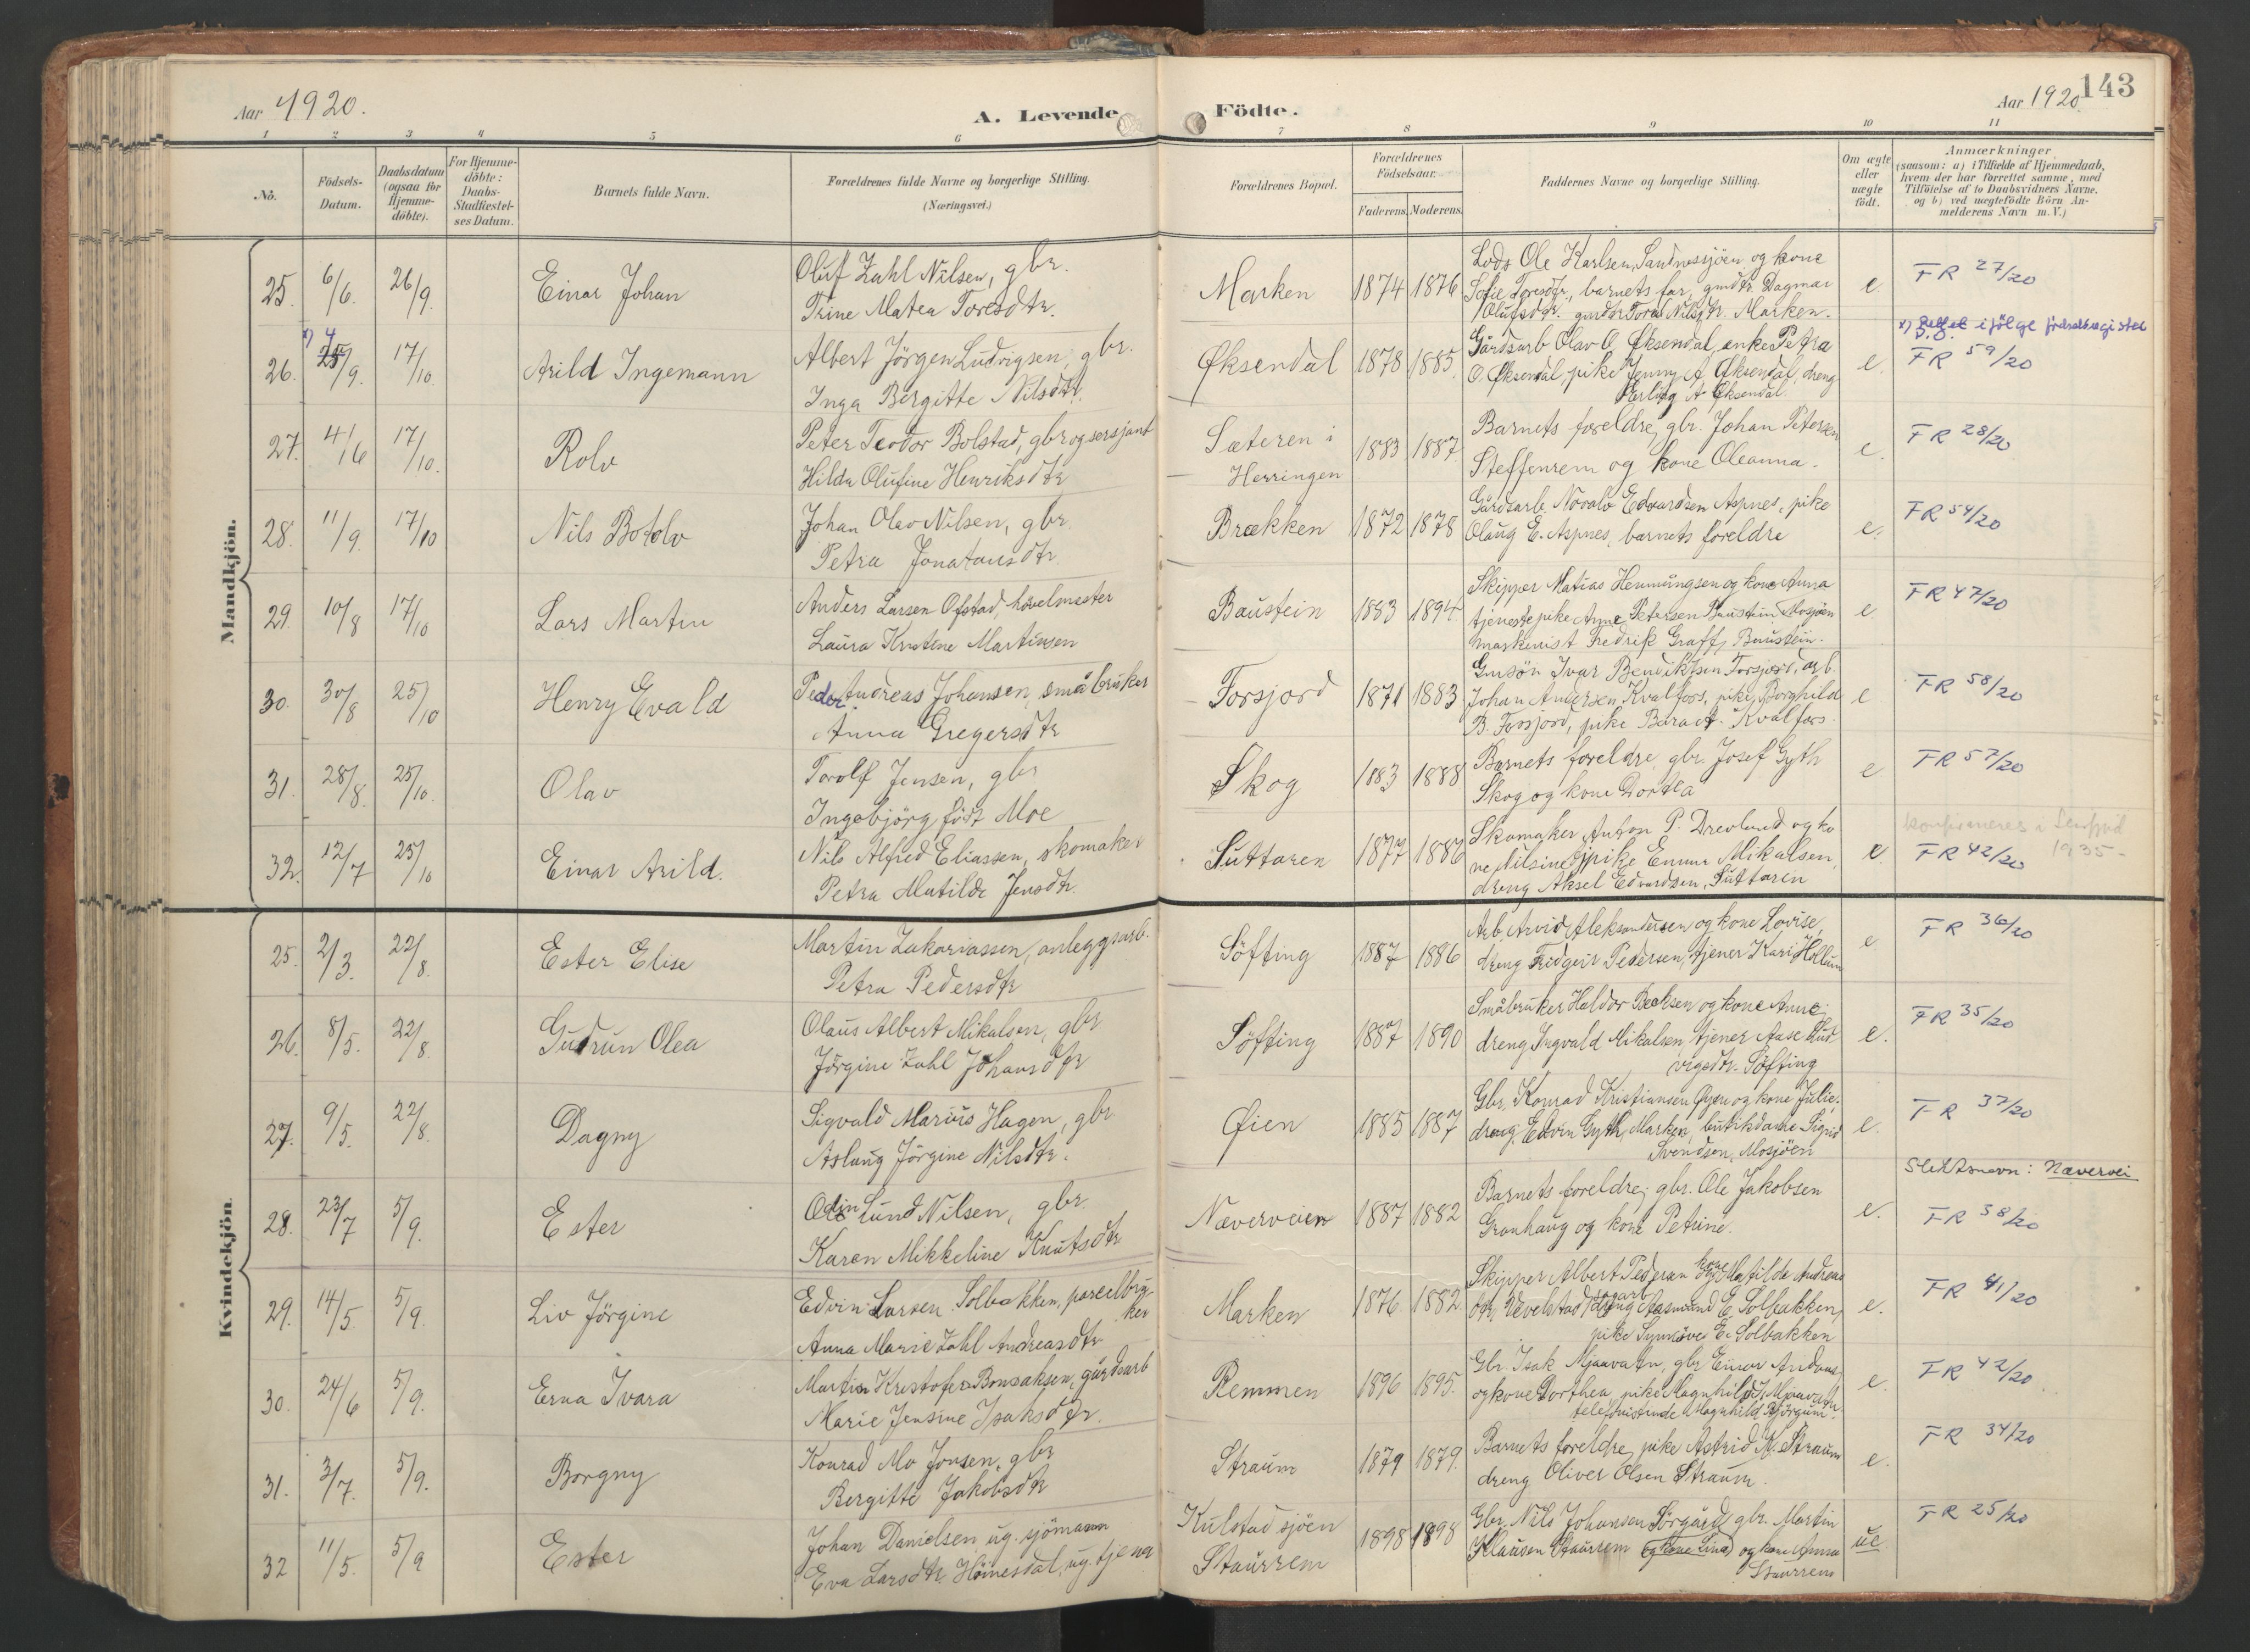 Aar 1920.
A. Levende
Födte.
Aar 1920
143
1 2 3 4 5 6 7 8 9 10 11
No.
Födsels-
Datum.
Daabsdatum
(ogsaa for
Hjemme-
döbte).
For Hjemme-
döbte:
Daabs-
Stadfæstel-
ses Datum.
Barnets fulde Navn.
Forældrenes fulde Navne og borgerlige Stilling.
(Næringsvei.)
Forældrenes Bopæl.
Forældrenes
Födselsaar.
Faderens. Moderens.
Faddernes Navne og borgerlige Stilling.
Om ægte
eller
uægte
födt.
Anmærkninger
(saasom: a) i Tilfælde af Hjemmedaab,
hvem der har forrettet samme, med
Tilföielse af to Daabsvidners Navne.
og b) ved uægtefödte Börn An-
melderens Navn m. V.)
Mandkjön.
25. 6/6. 26/9. Einar Johan
Oluf Zahl Nilsen, gbr.
Trine Matea Toresdtr.
Marken 1874 1876
Lods Ole Karlsen, Sandnessjöen og kone
Sofie Toresdtr., barnets far, gmdtr. Dagmar
Olufsdtr. gmdtr Tora Nilsdtr. Marken.
e. FR 27/20
x) Rettet ifölge födselsregistet
26. x) 4 25/9. 17/10. Arild Ingemann
Albert Jörgen Ludvigsen, gbr.
Inga Bergitte Nilsdtr.
Øksendal 1878 1885.
Gårdsarb Olav O. Øksendal, enke Petra
O. Øksendal, pike Jenny A Øksendal, dreng
Erling A Øksendal.
e. FR 59/20
27. 4/6 17/10. Rolv
Peter Teodor Bolstad, gbr og sersjant
Hilda Olufine Henriksdtr
Sæteren i
Herringen
1883 1887
Barnets foreldre, gbr. Johan Petersen
Steffenrem og kone Oleanna.
e. FR 28/20
28. 11/9. 17/10 Nils Botolv
Johan Olav Nilsen, gbr.
Petra Jonatansdtr.
Brækken 1872 1878
Gårdsarb. Noralv Edvardsen Aspnes, pike
Olaug E. Aspnes, barnets foreldre
e. FR 54/20
29. 10/8 17/10 Lars Martin
Anders Larsen Ofstad, hövelmester
Laura Kristine Martinsen
Baustein 1883 1894.
Skipper Matias Hemmingsen og kone Anna
tjenestepike Anne Petersen Baustein, Mosjöen
maskinist Fredrik Graff, Baustein.
e. FR 47/20
30. 30/8 25/10 Henry Evald
Peder Andreas Johansen, småbruker
Anna Gregersdtr
Forsjord 1871 1883
Gmsön Ivar Bendiktsen Forsjord, arb.
Johan Andersen, Kvalfors, pike Borghild
B. Forsjord, pike Bara A. Kvalfors.
e FR 58/20
31. 28/8. 25/10. Olav
Torolf Jensen, gbr
Ingebjörg födt Moe
Skog 1883 1888
Barnets foreldre, gbr. Josef Gyth
Skog og kone Dortea
e FR 57/20
konfirmeres i Leirfjord
1935-
32. 12/7 25/10 Einar Arild.
Nils Alfred Eliassen, skomaker
Petra Matilde Jensdtr.
Luttaren 1877 1886
Skomaker Anton P. Drevland og ko
ne Nilsine, pike Emma Mikalsen,
dreng Aksel Edvardsen, Luttaren
e. FR 42/20
Kvindekjön.
25. 2/3. 22/8. Ester Elise
Martin Zakariassen, anleggsarb.
Petra Pedersdtr
Söfting 1887 1886
Arb. Arvid Aleksandersen og kone Lovise,
dreng Fridgeir Pedersen, tjener Kari Hollum
e FR 36/20
26. 8/5. 22/8. Gudrun Olea
Olaus Albert Mikalsen, gbr
Jörgine Zahl Johansdtr
Söfting 1887 1890
Småbruker Haldor Becksen og kone Anne,
dreng Ingvald Mikalsen, tjener Aase Lud-
vigsdtr. Söfting
e. FR 35/20
27. 9/5. 22/8. Dagny
Sigvald Marius Hagen, gbr
Aslaug Jörgine Nilsdtr.
Øien 1885 1887
Gbr. Konrad Kristiansen Øyen og kone Julie,
dreng Edvin Gyth, Marken, butikdame Sigrid
Svendsen, Mosjöen
e. FR 37/20
Slektsnavn: Nævervei
28. 23/7 5/9. Ester
Odin Lund Nilsen, gbr.
Karen Mikkeline Knutsdtr
Næverveien 1887 1882
Barnets foreldre, gbr. Ole Jakobsen
Granhaug og kone Petrine.
e. FR 38/20
29. 14/5. 5/9. Liv Jörgine
Edvin Larsen Solbakken, parcelbru-
ker
Anna Marie Zahl Andreasdtr
Marken 1876 1882
Skipper Albert Pedersen kone Matilde Andreas
dtr, Vevelstad, dreng Aasmund E. Solbakken,
pike Synnöve E. Solbakken
e. FR 41/20
30. 24/6 5/9. Erna Ivara
Martin Kristofer Bonsaksen, gårdsarb
Marie Jensine Isaksdtr.
Remmen 1896 1895.
Gbr. Isak Mjaavatn, gbr Einar Andaas
og kone Dorthea, pike Magnhild I. Mjaavatn
telefonistinde Magnhild Björgum.
e FR 42/20
31. 3/7. 5/9. Borgny
Konrad Mo Jonsen, gbr
Bergitte Jakobsdtr
Straum 1879 1879.
Barnets foreldre, pike Astrid K. Straum
dreng Oliver Olsen Straum.
e. FR 34/20
32 11/5. 5/9 Ester
Johan Danielsen, ug. sjömann
Eva Larsdtr. Homesdal, ug. tjener
Kulstadsjöen
Staurrem
1898 1898
Gbr. Nils Johansen Sörgård, gbr. Martin
Klausen Staurrem og kone Lina og kone Anna
Staurrem
ue FR 25/20